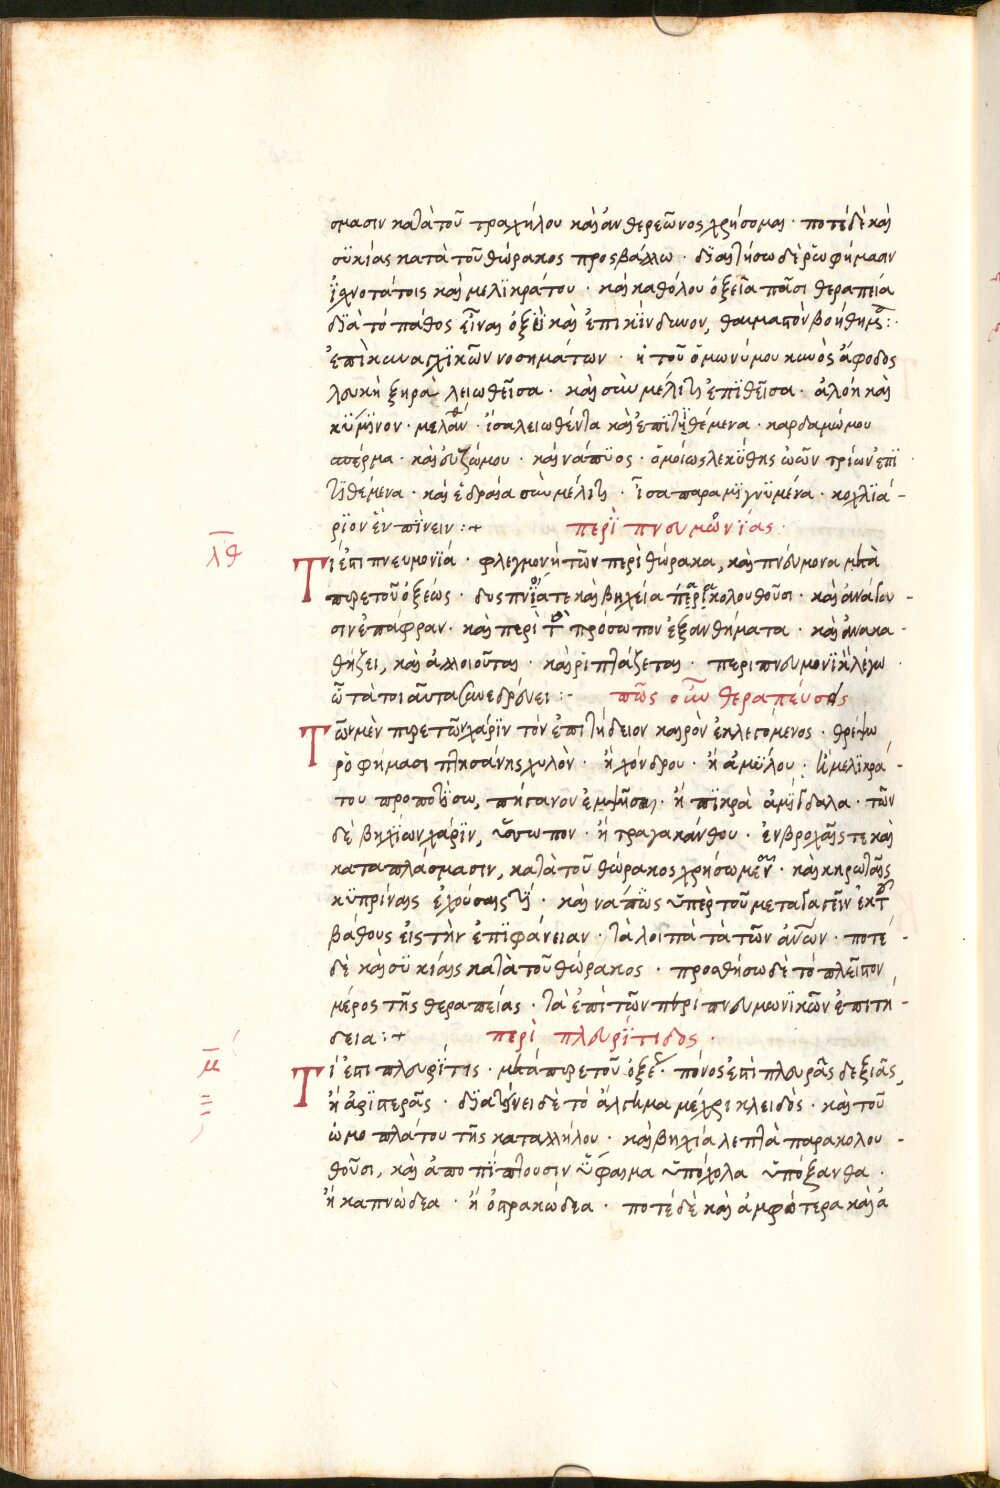 σμασιν κατὰ τοῦ τραχήλου καὶ ἀνθερεῶνος χρήσομαι · ποτὲ δὲ καὶ
σϋκίας κατὰ τοῦ θώρακος προσβάλλω · δϊαιτήσω δὲ ῥωφήμασιν
ἰ̈χνοτάτοις καὶ μελϊκράτου · καὶ καθόλου ὀξεῖα πᾶσι θεραπεία
δϊὰ τὸ πάθος εἶναι ὀξεῖ καὶ ἐπικίνδυνον, θαυμαστὸν βοήθημα :·
ἐπὶ κυναγχϊκῶν νοσημάτων · ἡ τοῦ ὁμωνύμου κυνὸς ἄφοδος
λευκὴ ξηρὰ λειωθεῖσα · καὶ σὺν μέλιτι ἐπϊθεῖσα · ἀλόη καὶ
κύμϊνον · μελάνθ · ἴσα λειωθέντα καὶ ἐπϊτϊθέμενα · καρδαμώμου
σπέρμα · καὶ εὐζώμου · καὶ νάπϋος · ὁμοίως λεκύθης ὠῶν τρίων ἐπϊ
τϊθέμενα · καὶ ἑδραία σὺν μέλιτι · ἴσα παραμϊγνϋμένα · κοχλϊά -
ρϊον ἓν πίνειν :+ περϊ πνευμωνΐας ·
λθ
Τί ἐστι πνευμονϊά · φλεγμονὴ τῶν περὶ θώρακα, καὶ πνεύμονα μετὰ
πυρετοῦ ὀξέως · δύσπνοιά τε καὶ βηχεία παρακολουθοῦσι · καὶ ἀνάγου -
σιν ἐπάφραν · καὶ περὶ τὸ πρόσωπον ἐξανθήματα · καὶ ἀνακα -
θήζει, καὶ ἀλλοιοῦται · καὶ ῥϊπτάζεται · περιπνευμονϊκὰ λέγω ·
ᾧ τὰ τοιαῦτα συνεδρεύει :- πῶς οὖν θεραπεύσεις
Τῶν μὲν πυρετῶν χάρϊν τὸν ἐπιτήδειον καιρὸν ἐκλεγόμενος · θρέψω
ῥοφήμασι πτησάνης χυλὸν · ἢ χόνδρου · ἢ ἀμϋλου · ἢ μελϊκρά -
του προποτίσω, πήγανον ἑψήσας · ἢ πϊκρὰ ἀμΰγδαλα · τῶν
δὲ βηχίων χάρϊν, ὕσσωπον · ἢ τραγακάνθου · ἐνβροχαῖς τε καὶ
καταπλάσμασιν, κατὰ τοῦ θώρακος χρήσωμεν · καὶ κηρωταῖς
κϋπρίναις ἐχούσαις τϊ · καὶ νάπϋος ὑπὲρ τοῦ μεταγαγεῖν ἐκ τοῦ
βάθους εἰς τὴν ἐπϊφάνειαν · τὰ λοιπὰ τὰ τῶν ἀνω̃ν · ποτὲ -
δὲ καὶ σϋκίαις κατὰ τοῦ θώρακος · προσθήσω δὲ τὸ πλεῖστον
μέρος τῆς θεραπείας · τὰ ἐπὶ τῶν περιπνευμωνϊκῶν ἐπιτή -
δεια :+ περὶ πλευρΐτιδος ·
μ
Τί ἐστι πλευρῖτις · μετὰ πυρετοῦ ὀξέος · πόνος ἐπὶ πλευρᾶς δεξιᾶς,
ἢ ἀρϊστερᾶς · δϊατείνει δὲ τὸ ἄλγημα μέχρι κλειδὸς · καὶ τοῦ
ὠμοπλάτου τῆς καταλλήλου · καὶ βηχία λεπτὰ παρακολου -
θοῦσι, καὶ ἀποπϊπτουσιν ὕφαιμα ὑπόχολα ὑπόξανθα ·
ἢ καπνώδεα · ἢ ὀστρακώδεα · ποτὲ δὲ καὶ ἀμφώτερα καὶ ἀ